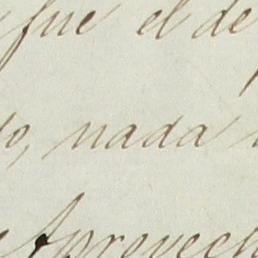 fue el de
to, nada
Aprovech